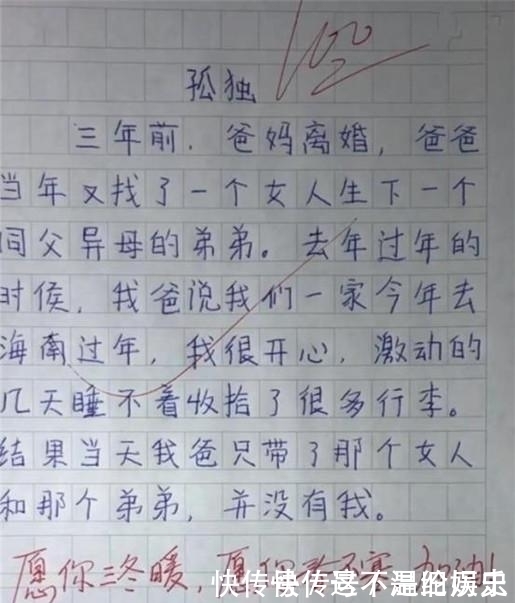 100
孤独
三年前，爸妈离婚，爸爸
当年又找了一个女人生下一个
同父异母的弟弟。去年过年的
时侯，我爸说我们一家今年去
海南过年，我很开心，激动的
几天睡不着收拾了很多行李。
结果当天我爸只带了那个女人
和那个弟弟，并没有我。
愿你三冬暖，愿你
快传